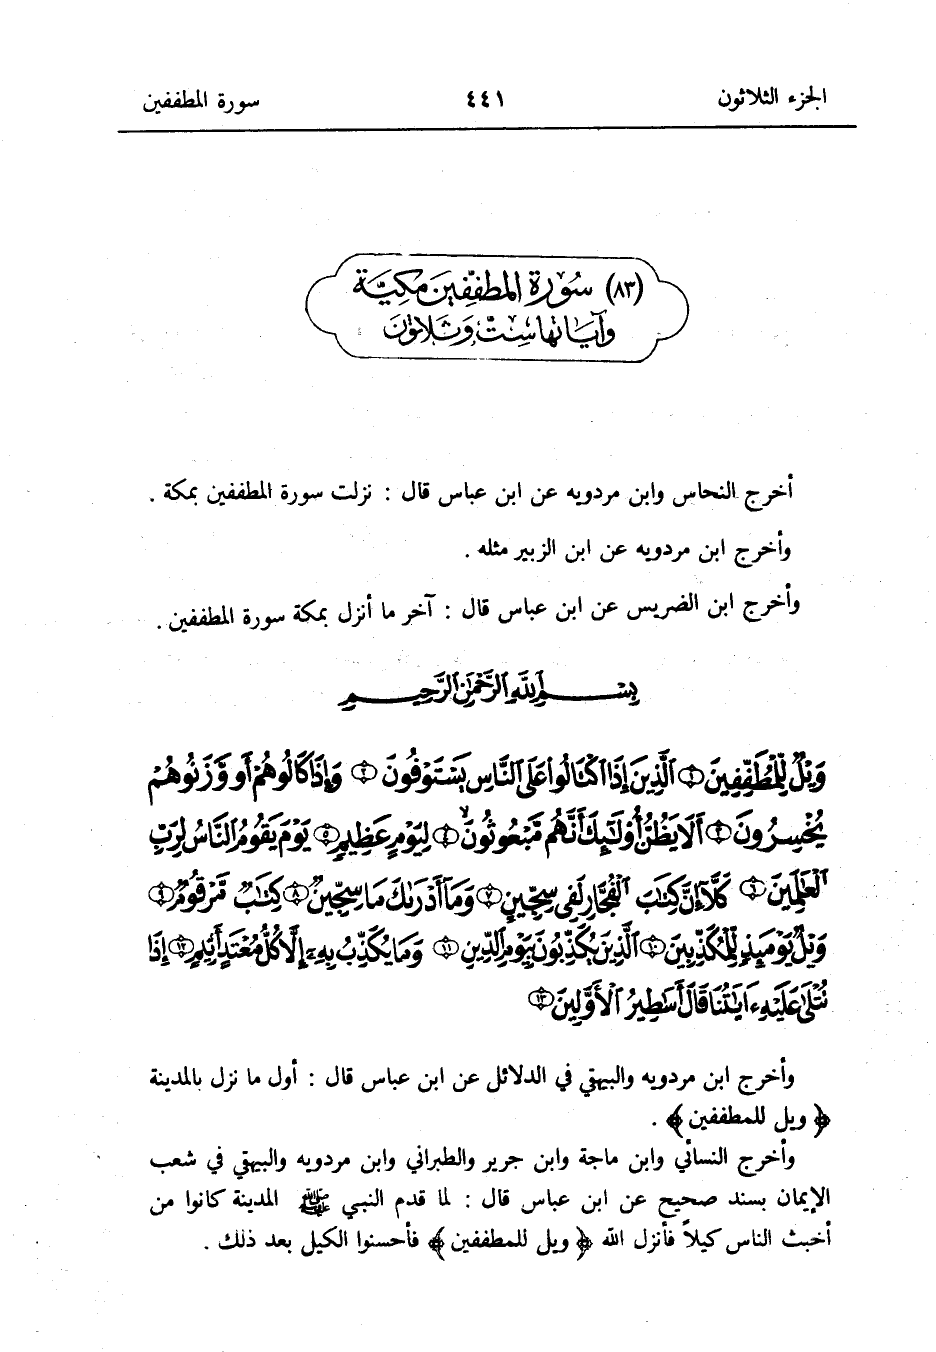 الجزء الثلاثون ٤٤١ سورة المطففين
(٨٣) سُورَة المطفّفِينَ مكِيَّة
وآياتها ستٌّ وَثلاثونَ
أخرج النحاس وابن مردويه عن ابن عباس قال : نزلت سورة المطففين بمكة .
وأخرج ابن مردويه عن ابن الزبير مثله .
وأخرج ابن الضريس عن ابن عباس قال : آخر ما أنزل بمكة سورة المطففين .
بِسْمِ اللَّهِ الرَّحْمَٰنِ الرَّحِيمِ
وَيْلٌ لِّلْمُطَفِّفِينَ ١ الَّذِينَ إِذَا اكْتَالُوا عَلَى النَّاسِ يَسْتَوْفُونَ ٢ وَإِذَا كَالُوهُمْ أَو وَّزَنُوهُمْ
يُخْسِرُونَ ٣ أَلَا يَظُنُّ أُولَٰئِكَ أَنَّهُم مَّبْعُوثُونَ ٤ لِيَوْمٍ عَظِيمٍ ٥ يَوْمَ يَقُومُ النَّاسُ لِرَبِّ
الْعَالَمِينَ ٦ كَلَّا إِنَّ كِتَابَ الْفُجَّارِ لَفِي سِجِّينٍ ٧ وَمَا أَدْرَاكَ مَا سِجِّينٌ ٨ كِتَابٌ مَّرْقُومٌ ٩
وَيْلٌ يَوْمَئِذٍ لِّلْمُكَذِّبِينَ ١٠ الَّذِينَ يُكَذِّبُونَ بِيَوْمِ الدِّينِ ١١ وَمَا يُكَذِّبُ بِهِ إِلَّا كُلُّ مُعْتَدٍ أَثِيمٍ ١٢ إِذَا
تُتْلَىٰ عَلَيْهِ ءَايَاتُنَا قَالَ أَسَاطِيرُ الْأَوَّلِينَ ١٣
وأخرج ابن مردويه والبيهقي في الدلائل عن ابن عباس قال : أول ما نزل بالمدينة
﴿ ويل للمطففين ﴾ .
وأخرج النسائي وابن ماجة وابن جرير والطبراني وابن مردويه والبيهقي في شعب
الإيمان بسند صحيح عن ابن عباس قال : لما قدم النبي ﷺ المدينة كانوا من
أخبث الناس كيلاً فأنزل الله ﴿ ويل للمطففين ﴾ فأحسنوا الكيل بعد ذلك .